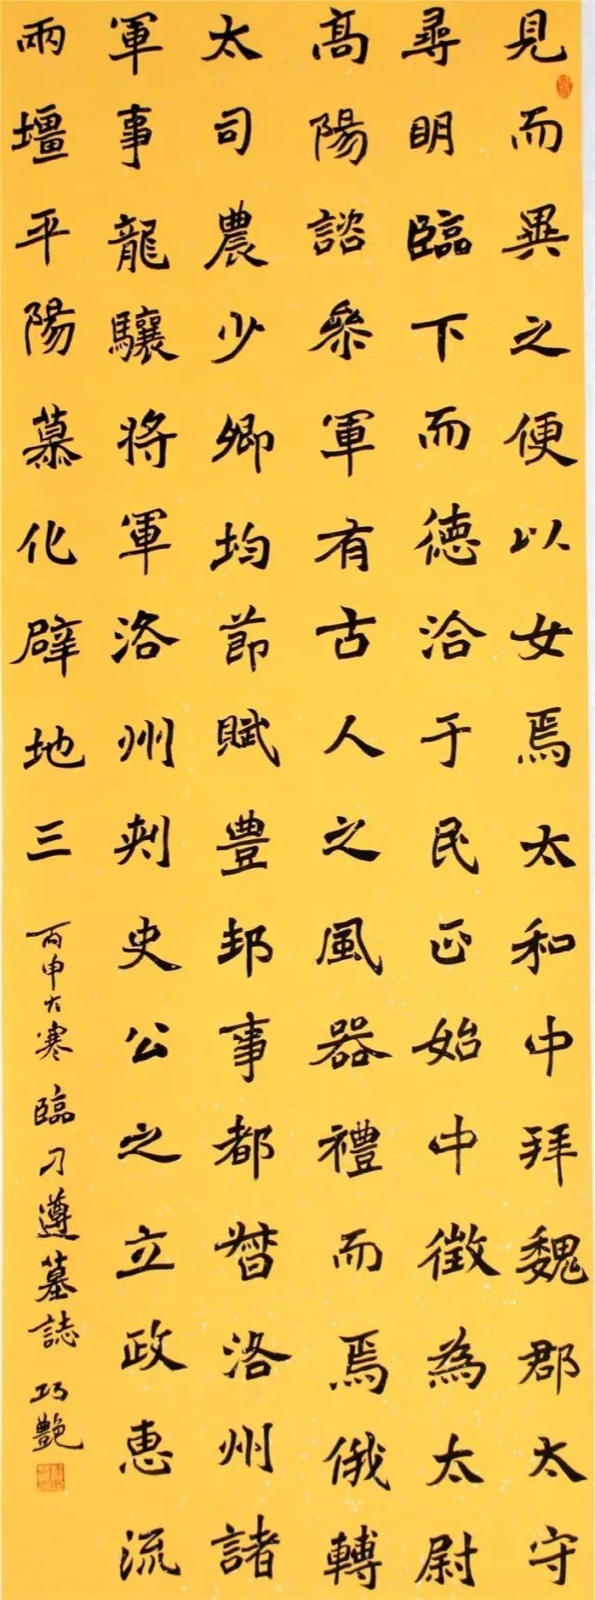 見而異之便以女焉太和中拜魏郡太守
尋明臨下而德洽于民正始中徵為太尉
高陽諮叅軍有古人之風器禮而焉俄轉
太司農少卿均節賦豊邦事都督洛州諸
軍事龍驤將軍洛州刺史公之立政惠流
兩壃平陽慕化辟地三
丙申大寒臨刁遵墓誌 巧艷